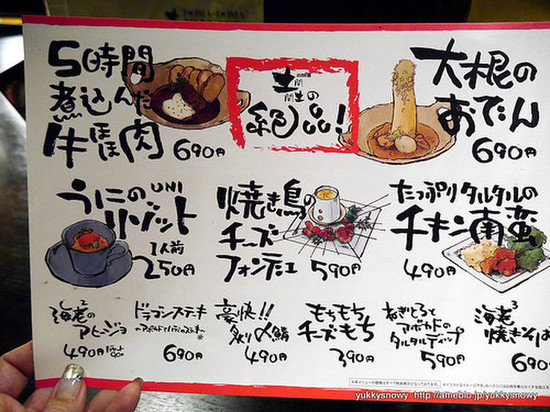 5時間
煮込んだ
牛ほほ肉
690円
土間土間の
絶品!
大根の
おでん
690円
うにの UNI
リゾット
1人前
250円
焼き鳥
チーズ
フォンデュ
590円
たっぷりタルタルの
チキン南蛮
490円
海老の
アヒージョ
490円
ドラゴンステーキ
690円
豪快!!
炙り〆鯖
490円
もちもち
チーズもち
390円
ねぎとろと
アボカドの
タルタルディップ
590円
海老
焼き
yukkysnowy http://ameblo.jp/yukkysnowy